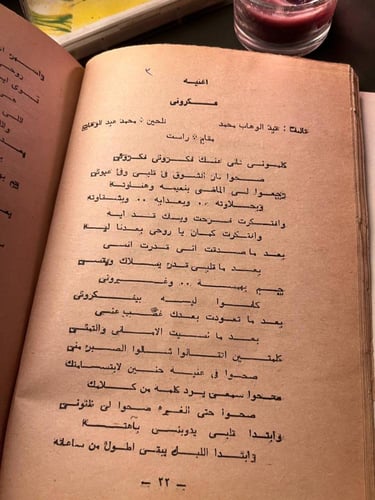 اغنيه
فكرونى
تأليف : عبد الوهاب محمد    تلحين : محمد عبد الوهاب
مقام : راست
كلمونى تانى عنك فكرونى فكرونى
صحوا نار الشوق فى قلبى وفى عيونى
رجعوا لى الماضى بنعيمه وهناوته
وبحلاوته .. وبعدابه .. وبقساوته
وافتكرت فرحت وياك قد ايه
وافتكرت كمان يا روحى بعدنا ليه
بعد ما صدقت انى قدرت انسى
بعد ما قلبى قدر يسلاك ويقسى
جم بهمسه .. وغيرونى
كانوا ليه بيفكرونى
بعد ما تعودت بعدك غصب عنى
بعد ما نسيت الامانى والتمنى
كلمتين اتقالوا شالوا الصبر منى
صحوا فى عنيه حنين لابتسامتك
صحوا سمعى يرد كلمه من كلامك
صحوا حتى الغيره صحوا لى ظنونى
وابتدا قلبى يدوبنى بآهته
وابتدا الليل يبقى اطول من ساعاته
— ٢٢ —